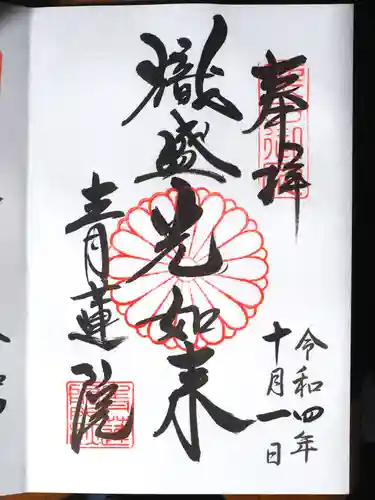 奉拝
令和四年
十月一日
熾盛光如来
青蓮院